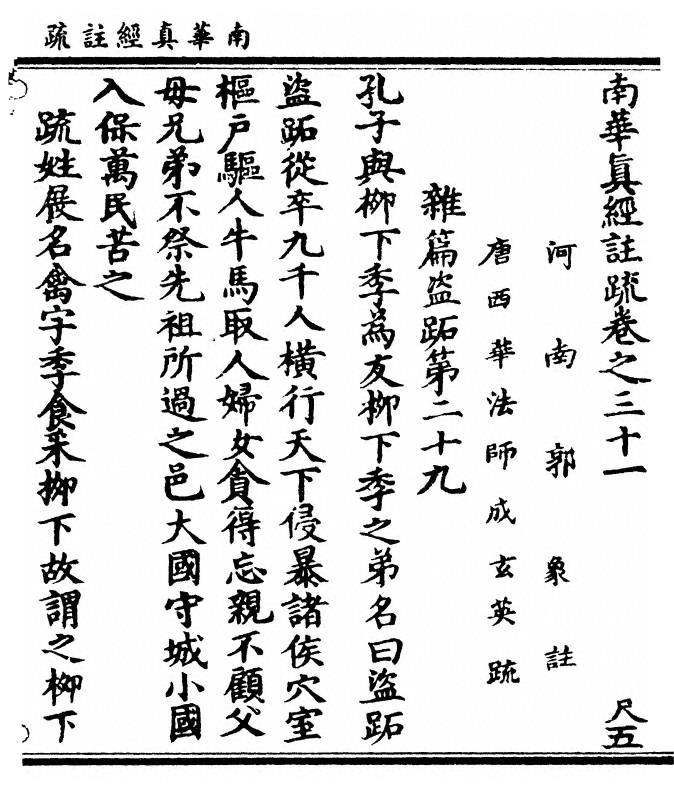 南華真經註疏
南華眞經註疏卷之三十一 尺五
河南郭象註
唐西華法師成玄英疏
雜篇盜跖第二十九
孔子與柳下季爲友柳下季之弟名曰盜跖
盜跖從卒九千人橫行天下侵暴諸侯穴室
樞戶驅人牛馬取人婦女貪得忘親不顧父
母兄弟不祭先祖所過之邑大國守城小國
入保萬民苦之
疏姓展名禽字季食采柳下故謂之柳下